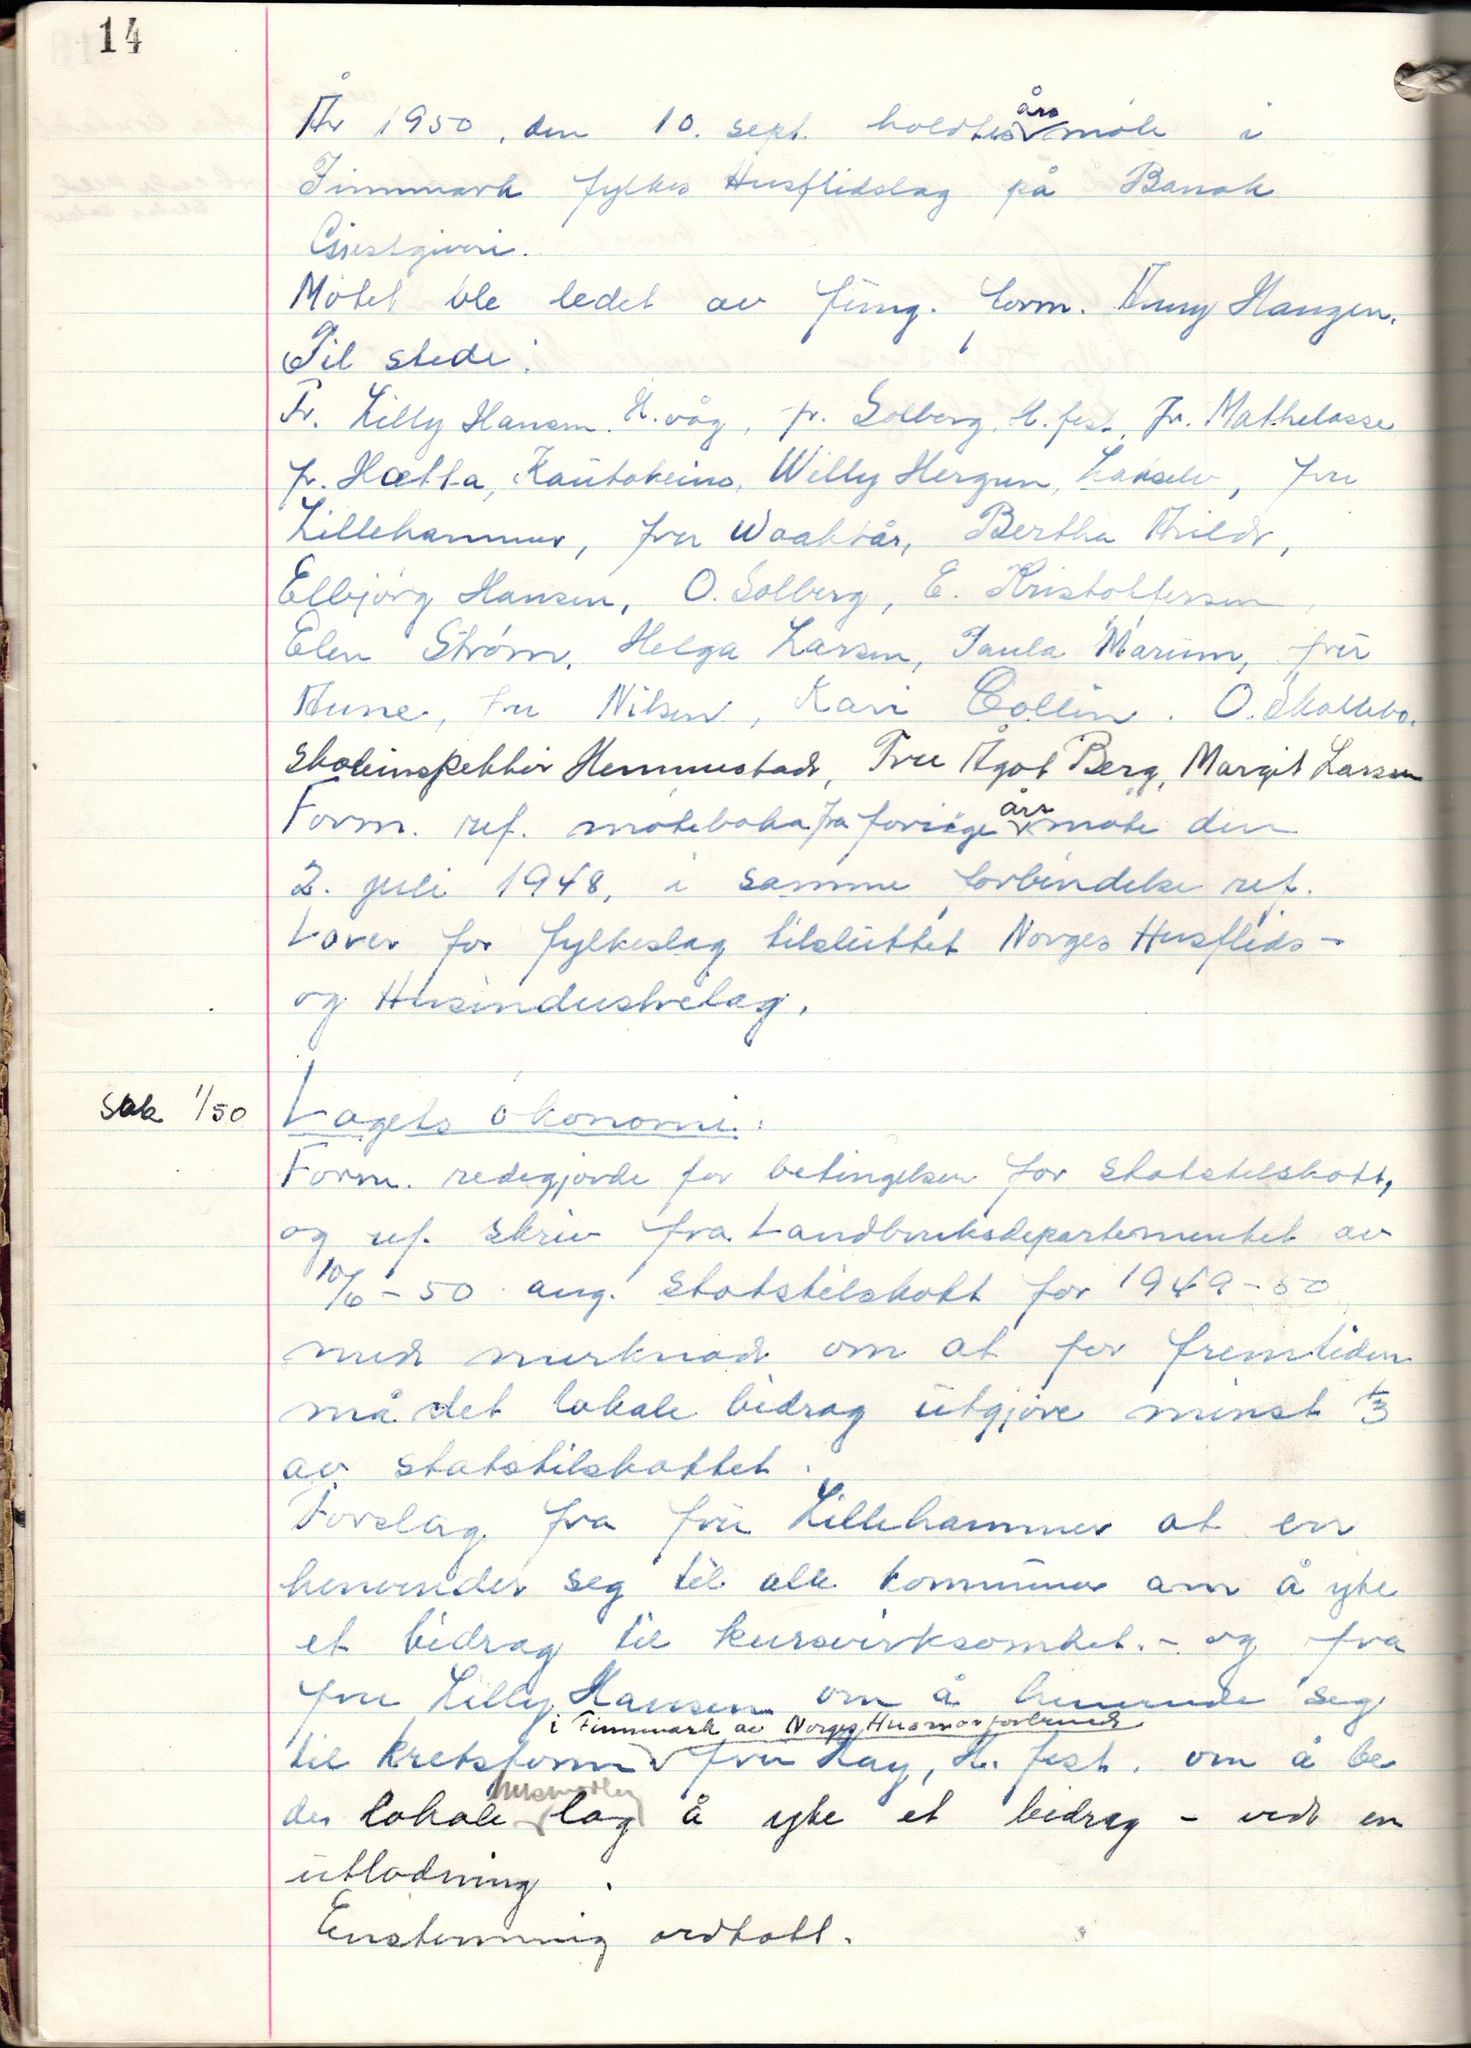 14
År 1950, den 10. sept. holdtes årsmøte i
Finnmark fylkes Husflidslag på Banak
Gjestgiveri.
Møtet ble ledet av fung. form. Anny Haugen.
Til stede:
Fr. Lilly Hansen H.våg, fr. Solberg, H.fest, fr. Mathelasse
fr. Hætta, Kautokeino, Willy Hergun, Lakselv, fru
Lillehammer, fru Waaktår, Bertha Thild,
Elbjørg Hansen, O. Solberg, E. Kristoffersen,
Elen Strøm, Helga Larsen, Paula Marum, fru
Aune, fru Nilsen, Kari Collin. O. Skallebo.
Skoleinspektør Hemmestad, Fru Ågot Berg, Margit Larsen
Form. ref. møteboka fra forrige årsmøte den
2. juli 1948, i samme forbindelse ref.
Lover for fylkeslag tilsluttet Norges Husflids-
og Husindustrilag.
Sak 1/50 Lagets økonomi:
Form. redegjorde for betingelsen for statstilskott,
og ref. skriv fra Landbruksdepartementet av
10/6-50 ang. statstilskott for 1949-50
med merknad om at for fremtiden
må det lokale bidrag utgjøre minst 1/3
av statstilskottet.
Forslag fra fru Lillehammer at en
henvender seg til alle kommuner om å yte
et bidrag til kursvirksomhet. - og fra
fru Lilly Hansen om å henvende seg
i Finnmark av Norges Husmorforbund
til kretsform fru Hay, H. fest. om å be
husmødre
de lokale lag å yte et bidrag - ved en
utlodning.
Enstemmig vedtatt.